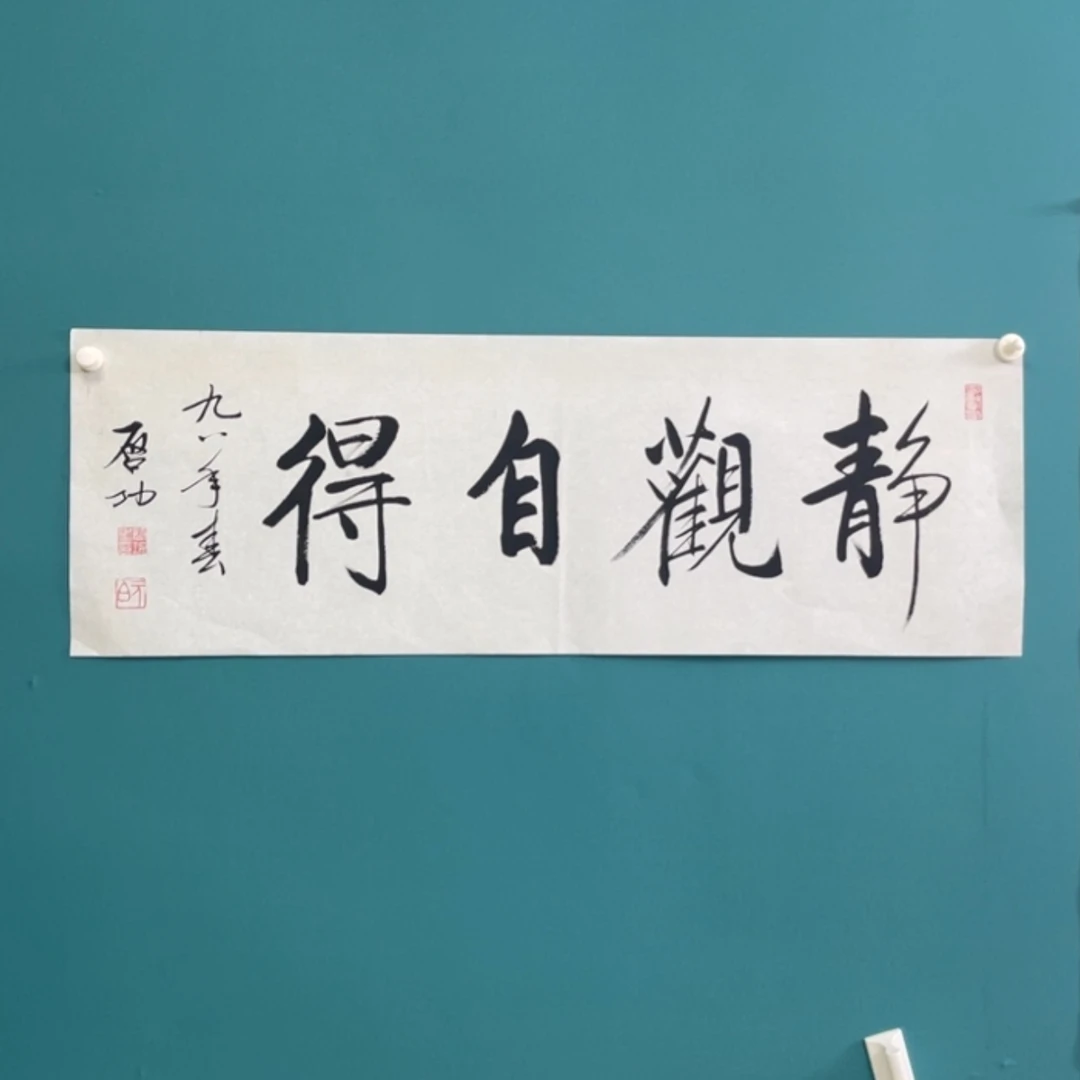 靜觀自得
九八年春
啓功